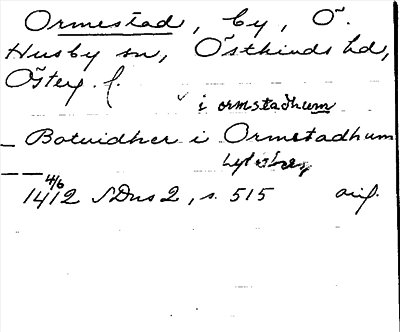 Ormestad, by, Ö.
Husby sn, Östkinds hd,
Österg. l.
i ormstadhum
Botvidher i Ormstadhum
4/6
1412 SDns 2, s. 515 orig.